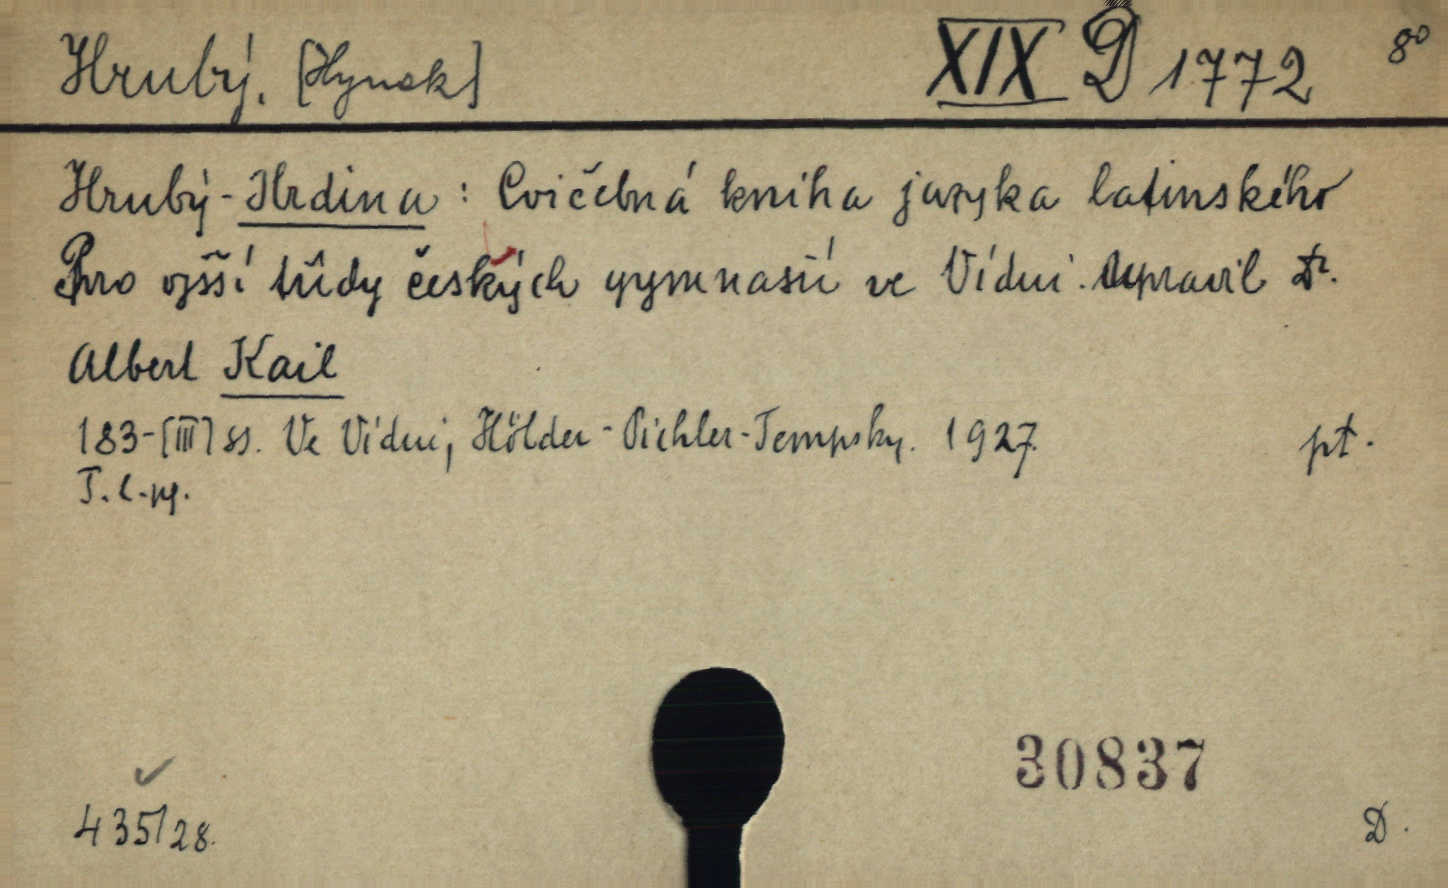 Hrubý. [Hynek] XIX D 1772 8°
Hrubý-Hrdina: Cvičebná kniha jazyka latinského
Pro vyšší třídy českých gymnasií ve Vídni. Upravil Dr.
Albert Kail
183-[III] ss. Ve Vídni, Hölder-Pichler-Tempsky. 1927. pt.
T.l.-pg.
30837
435/28. D.